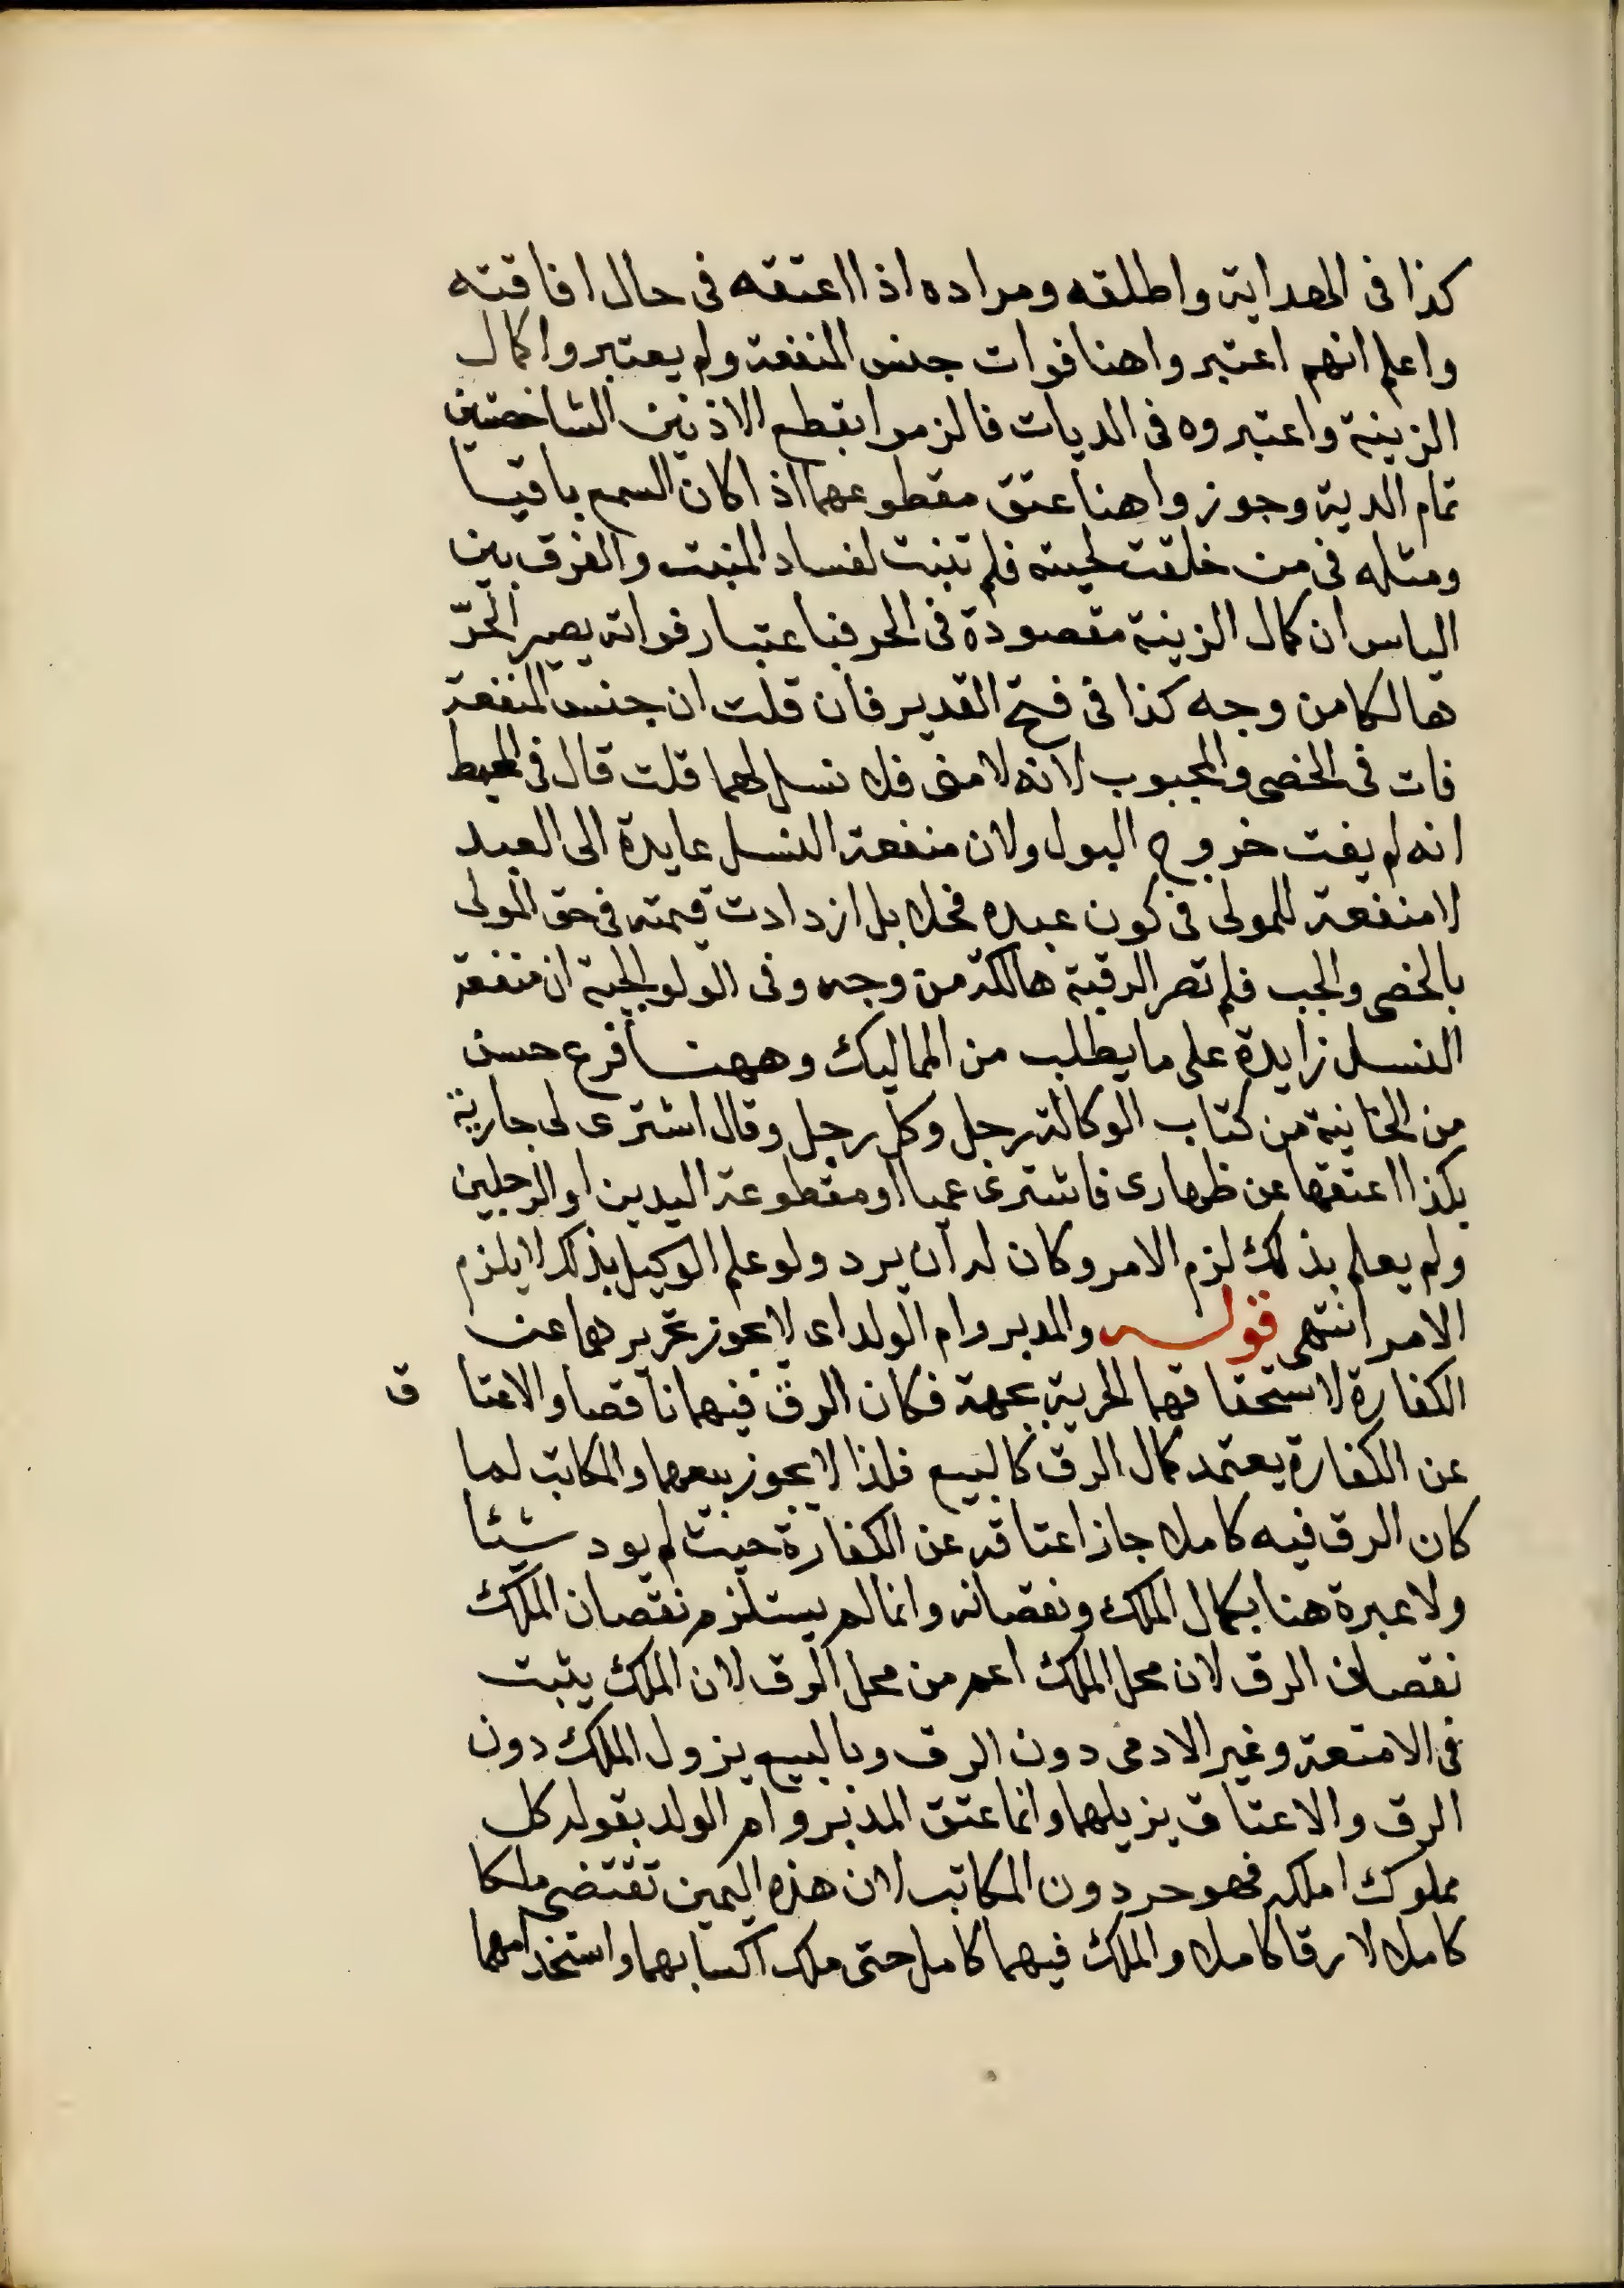 كذا فى الهداية واطلقه ومراده اذا اعتقه فى حال افاقته
واعلم انهم اعتبروا هنا فوات جنس المنفعة ولم يعتبروا كمال
الزينة واعتبروه فى الديات فالزموا بقطع الاذنين الشاخصتين
تمام الدية وجوزوا هنا عتق مقطوعهما اذا كان السمع باقيا
ومثله فى من خلقت لحيته فلم تنبت لفساد المنبت والفرق بين
البابين ان كمال الزينة مقصودة فى الحر فباعتبار فواته يصير الحرّ
هالكا من وجه كذا فى فتح القدير فان قلت ان جنس المنفعة
فات فى الخصى والمجبوب لانه لا منى فلا نسل لهما قلت قال فى المحيط
انه لم يفت خروج البول ولان منفعة النسل عايدة الى العبد
لا منفعة للمولى فى كون عبده فحلا بل ازدادت قيمته فى حق المولى
بالخصى والجب فلم تصر الرقبة هالكة من وجه وفى الولوالجية ان منفعة
النسل زايدة على ما يطلب من المماليك وههنا فرع حسن
من الخانية من كتاب الوكالة رجل وكل رجل وقال اشترى لى جارية
بكذا اعتقها عن ظهارى فاشترى عميا او مقطوعة اليدين او الرجلين
ولم يعلم بذلك لزم الامر وكان له ان يرد ولو علم الوكيل بذلك لا يلزم
الامر انتهى قوله والمدبر وام الولد اى لا يجوز تحريرهما عن
الكفارة لاستحقاقهما الحرية بجهة فكان الرق فيهما ناقصا والاعتاق
عن الكفارة يعتمد كمال الرق كالبيع فلذا لا يجوز بيعهما والمكاتب لما
كان الرق فيه كاملا جاز اعتاقه عن الكفارة حيث لم يود شيئا
ولا عبرة هنا بكمال الملك ونقصانه وانما لم يستلزم نقصان الملك
نقصان الرق لان محل الملك اعم من محل الرق لان الملك يثبت
فى الامتعة وغير الادمى دون الرق وبالبيع يزول الملك دون
الرق والاعتاق يزيلهما وانما عتق المدبر وام الولد بقوله كل
مملوك املكه فهو حر دون المكاتب لان هذه اليمين تقتضى ملكا
كاملا لا رقا كاملا والملك فيهما كامل حتى ملك اكسابهما واستخدامهما